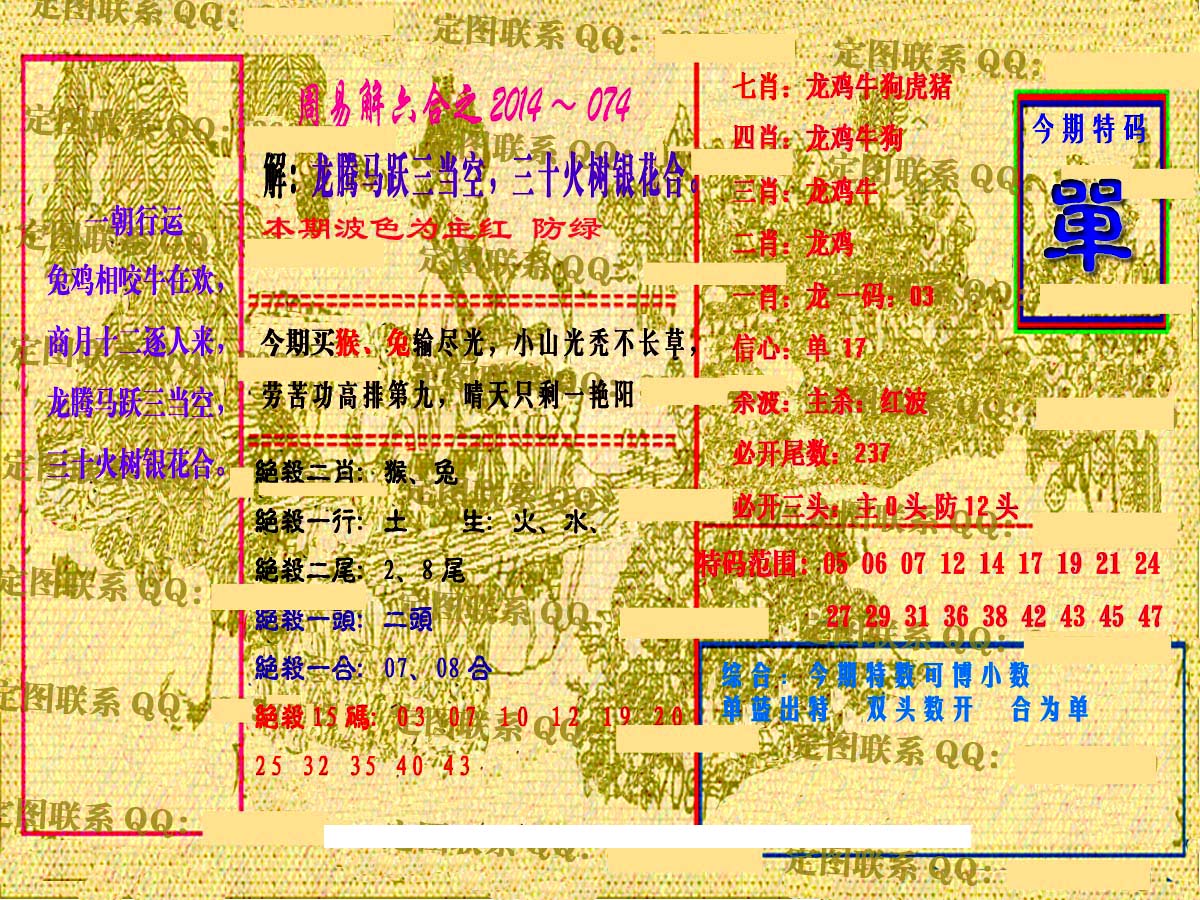 周易解六合之2014～074
解：龙腾马跃三当空，三十火树银花合。
本期波色为主红 防绿
一朝行运
兔鸡相咬牛在欢，
商月十二逐人来，
龙腾马跃三当空，
三十火树银花合。
今期买猴、兔输尽光，小山光秃不长草，
劳苦功高排第九，晴天只剩一艳阳
絕殺二肖：猴、兔
絕殺一行：土 生：火、水、
絕殺二尾：2、8尾
絕殺一頭：二頭
絕殺一合：07、08合
絕殺15碼：03 07 10 12 19 20
25 32 35 40 43
七肖：龙鸡牛狗虎猪
四肖：龙鸡牛狗
三肖：龙鸡牛
二肖：龙鸡
一肖：龙一码：03
信心：单 17
杀波：主杀：红波
必开尾数：237
必开三头：主0头防12头
今期特码
單
特码范围：05 06 07 12 14 17 19 21 24
27 29 31 36 38 42 43 45 47
综合：今期特数可博小数
单蓝出特 双头数开 合为单
定图联系 QQ：
定图联系 QQ：
定图联系 QQ：